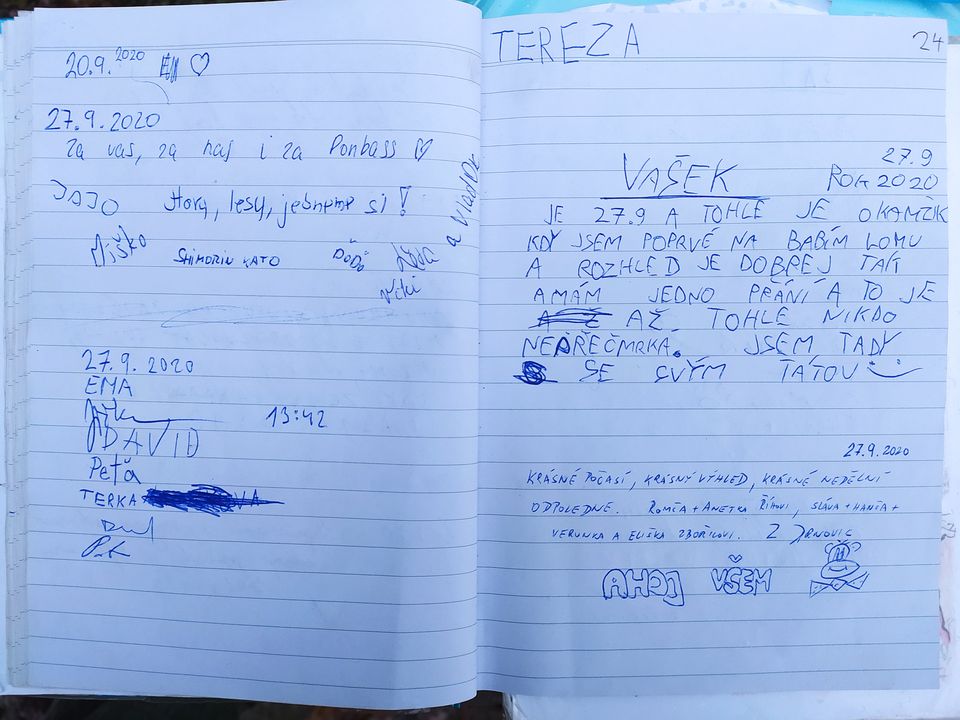 20.9. 2020
27.9.2020
Za vás, za nas i za Ponbass
JAJO Hory, lesy, jebneme si!
Miško SHIMORIN KATO DoDo
Niki
a Vlad
27.9.2020
EMA
13:42
DAVID
Peťa
TERKA
TEREZA
24
27.9
VAŠEK ROK 2020
JE 27.9 A TOHLE JE OKAMŽIK
KDY JSEM POPRVÉ NA BABÍM LOMU
A ROZHLED JE DOBŘEJ TAK
A MÁM JEDNO PŘÁNÍ A TO JE
AŽ TOHLE NIKDO
NEPŘEČMRKÁ. JSEM TADY
SE SVÝM TÁTOU
27.9.2020
KRÁSNÉ POČASÍ, KRÁSNÝ VÝHLED, KRÁSNÉ NEDĚLNÍ
ODPOLEDNE. ROMČA + ANETKA ŘÍHOVI, SLÁVA + HANČA +
VERUNKA A ELIŠKA ZBOŘILOVI. Z DRNOVIC
AHOJ VŠEM